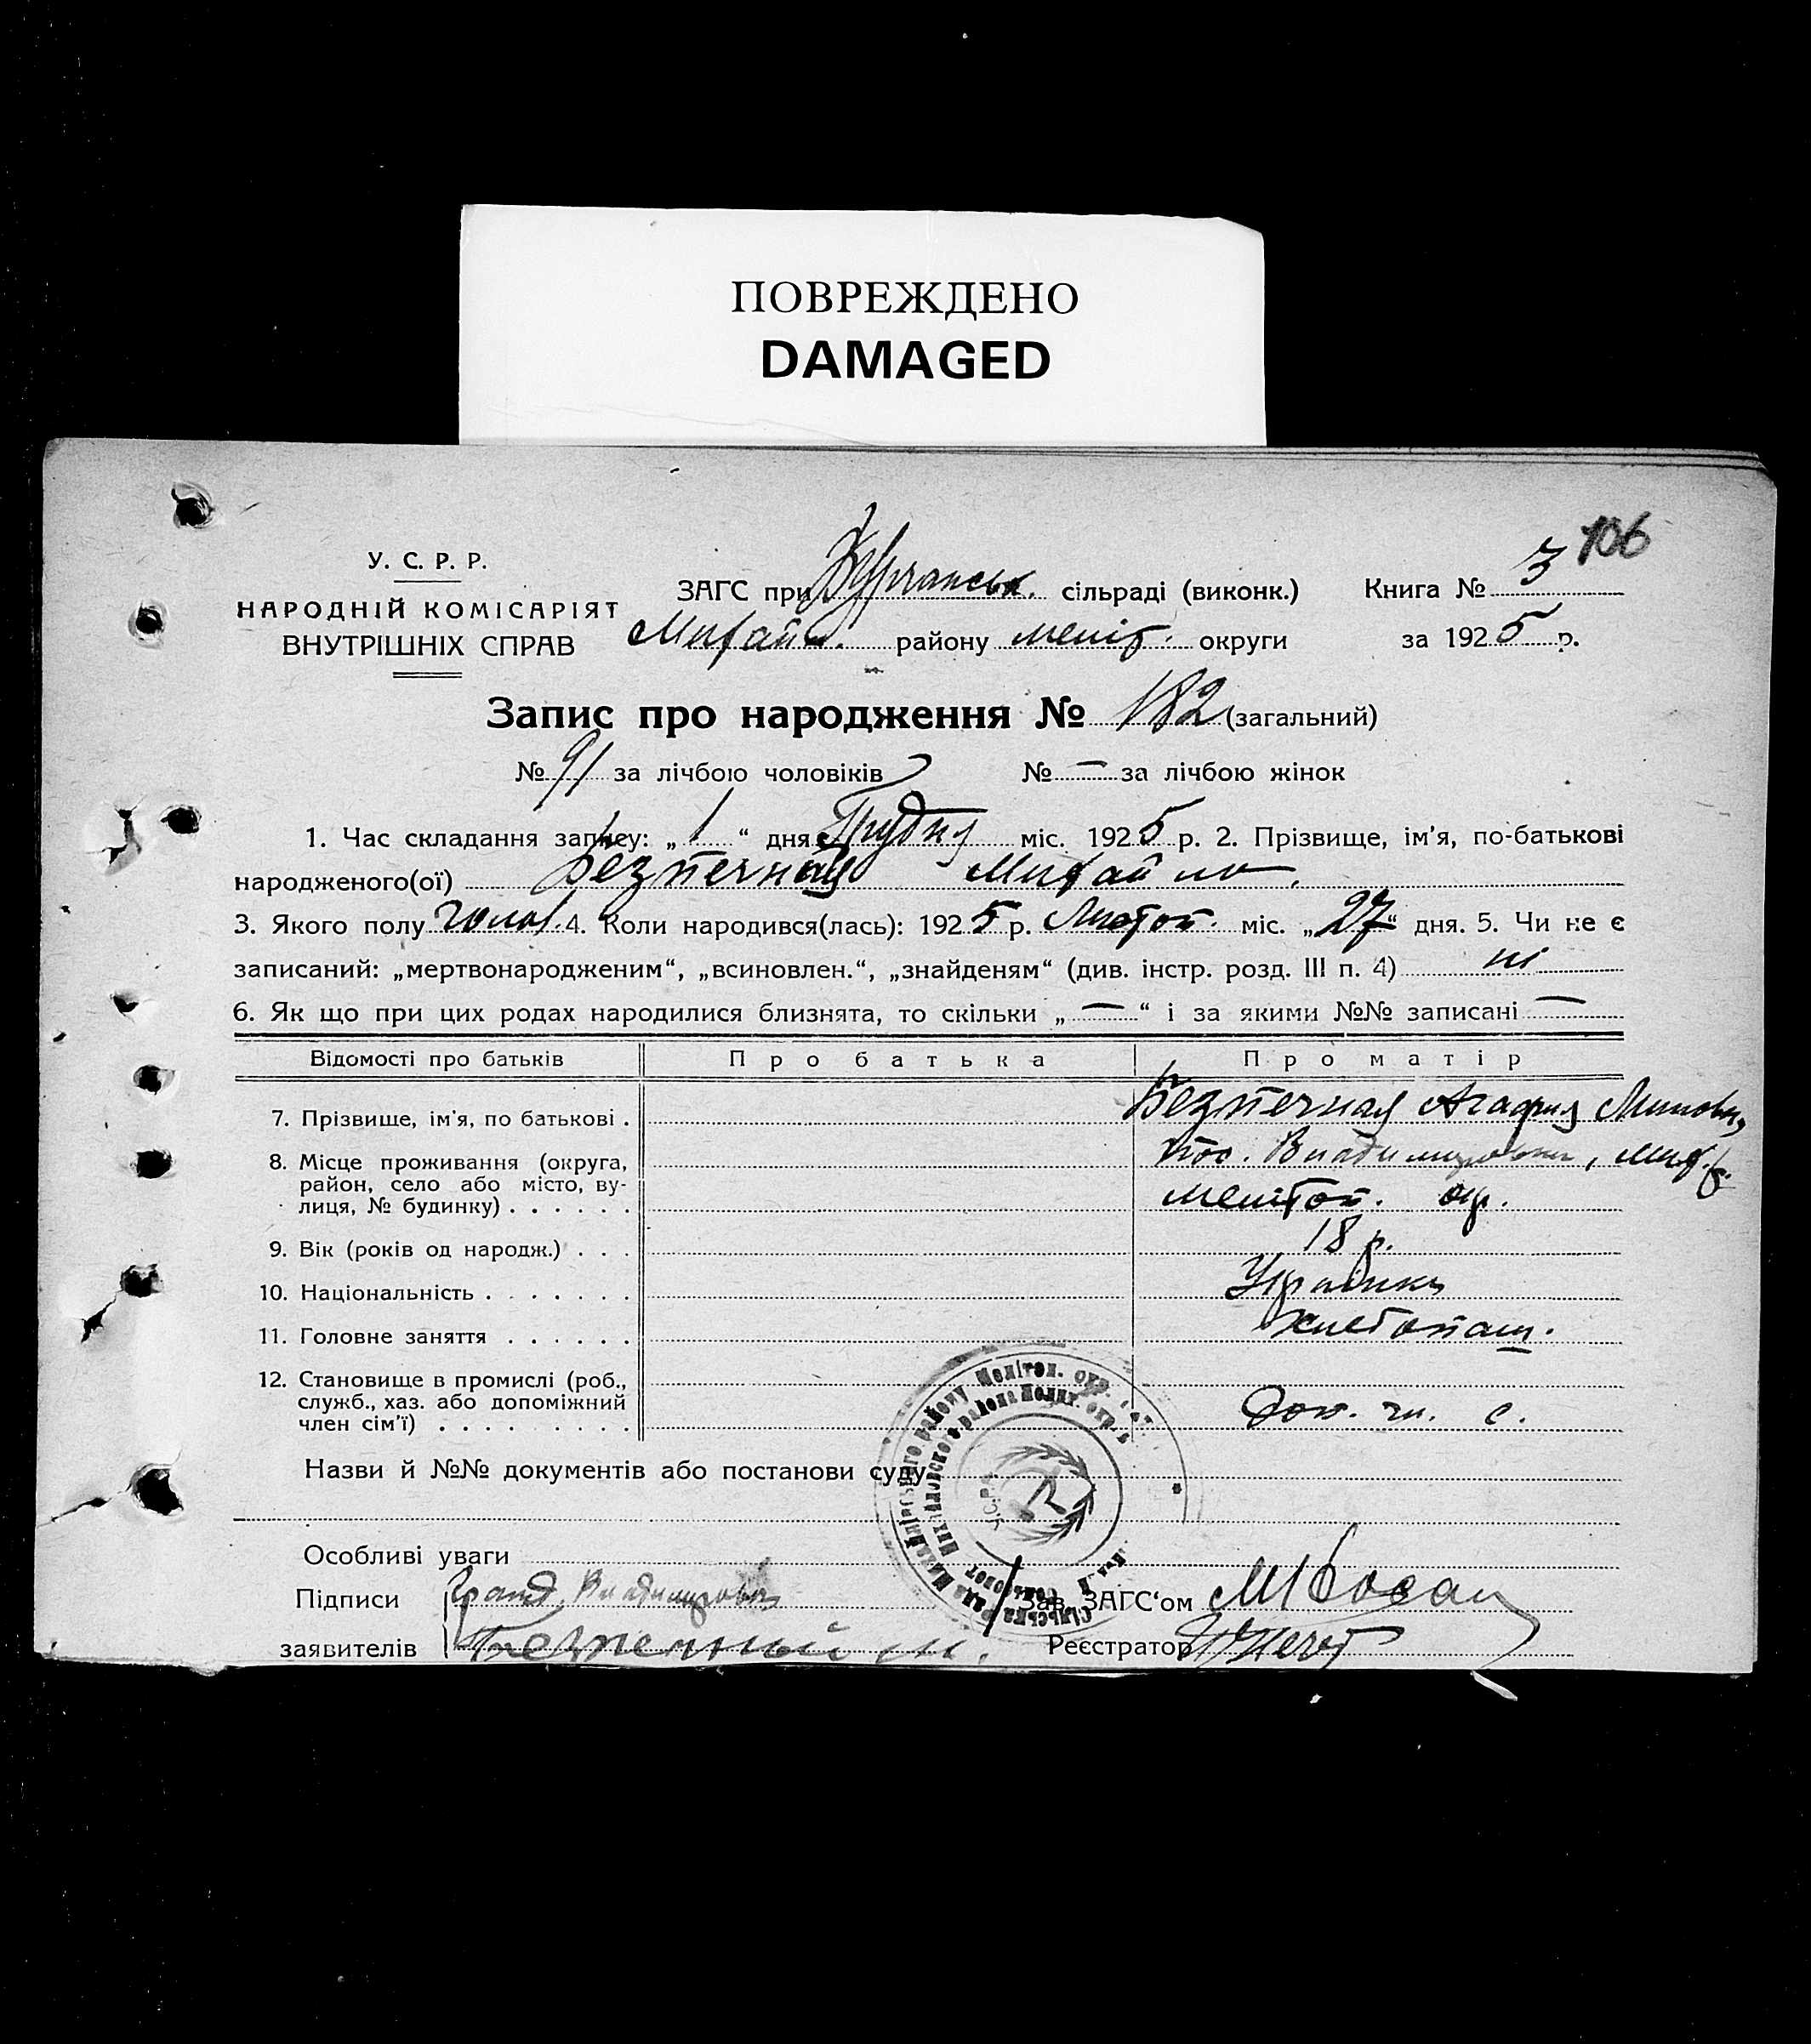 ПОВРЕЖДЕНО
DAMAGED
106
У. С. Р. Р.
НАРОДНІЙ КОМІСАРІЯТ
ВНУТРІШНІХ СПРАВ
ЗАГС при сільраді (виконк.) Книга № 3
Михайл. району меліт. округи за 1925 р.
Запис про народження № 182 (загальний)
№ 91 за лічбою чоловіків № — за лічбою жінок
1. Час складання запису: „ 1 “ дня Грудня міс. 1925 р. 2. Прізвище, ім'я, по-батькові
народженого(ої) Безпечная Михайло.
3. Якого полу чолов. 4. Коли народився(лась): 1925 р. Листоп. міс. „27“ дня. 5. Чи не є
записаний: „мертвонародженим“, „всиновлен.“, „знайденям“ (див. інстр. розд. III п. 4) ні
6. Як що при цих родах народилися близнята, то скільки „ — “ і за якими №№ записані —
Відомості про батьків Про батька Про матір
7. Прізвище, ім'я, по батькові . Безпечная Агафия
8. Місце проживання (округа, пос. Владимировки, мих. р.
район, село або місто, ву-
лиця, № будинку) . . . . . . мелітоп. окр.
9. Вік (років од народж.) . . . 18 р.
10. Національність . . . . . . . Українка
11. Головне заняття . . . . . . хлебопаш.
12. Становище в промислі (роб.,
служб., хаз. або допоміжний
член сім'ї) . . . . . . . . . Доп. чл. с.
Назви й №№ документів або постанови суду
Особливі уваги
Підписи Зав. ЗАГС'ом
заявителів Безпечный м. Реєстратор